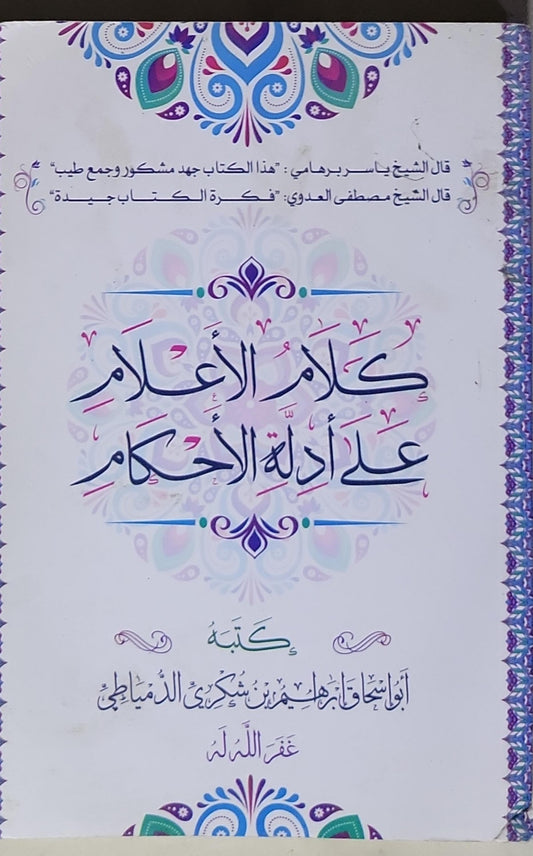 قال الشيخ ياسر برهامي : "هذا الكتاب جهد مشكور وجمع طيب"
قال الشيخ مصطفى العدوي: "فكرة الكتاب جيدة"
كَلَامُ الأَعْلَامِ
عَلَى أَدِلَّةِ الأَحْكَامِ
كَتَبَهُ
أبو إسحاق إبراهيم بن شكري الدمياطي
غَفَرَ اللَّهُ لَهُ